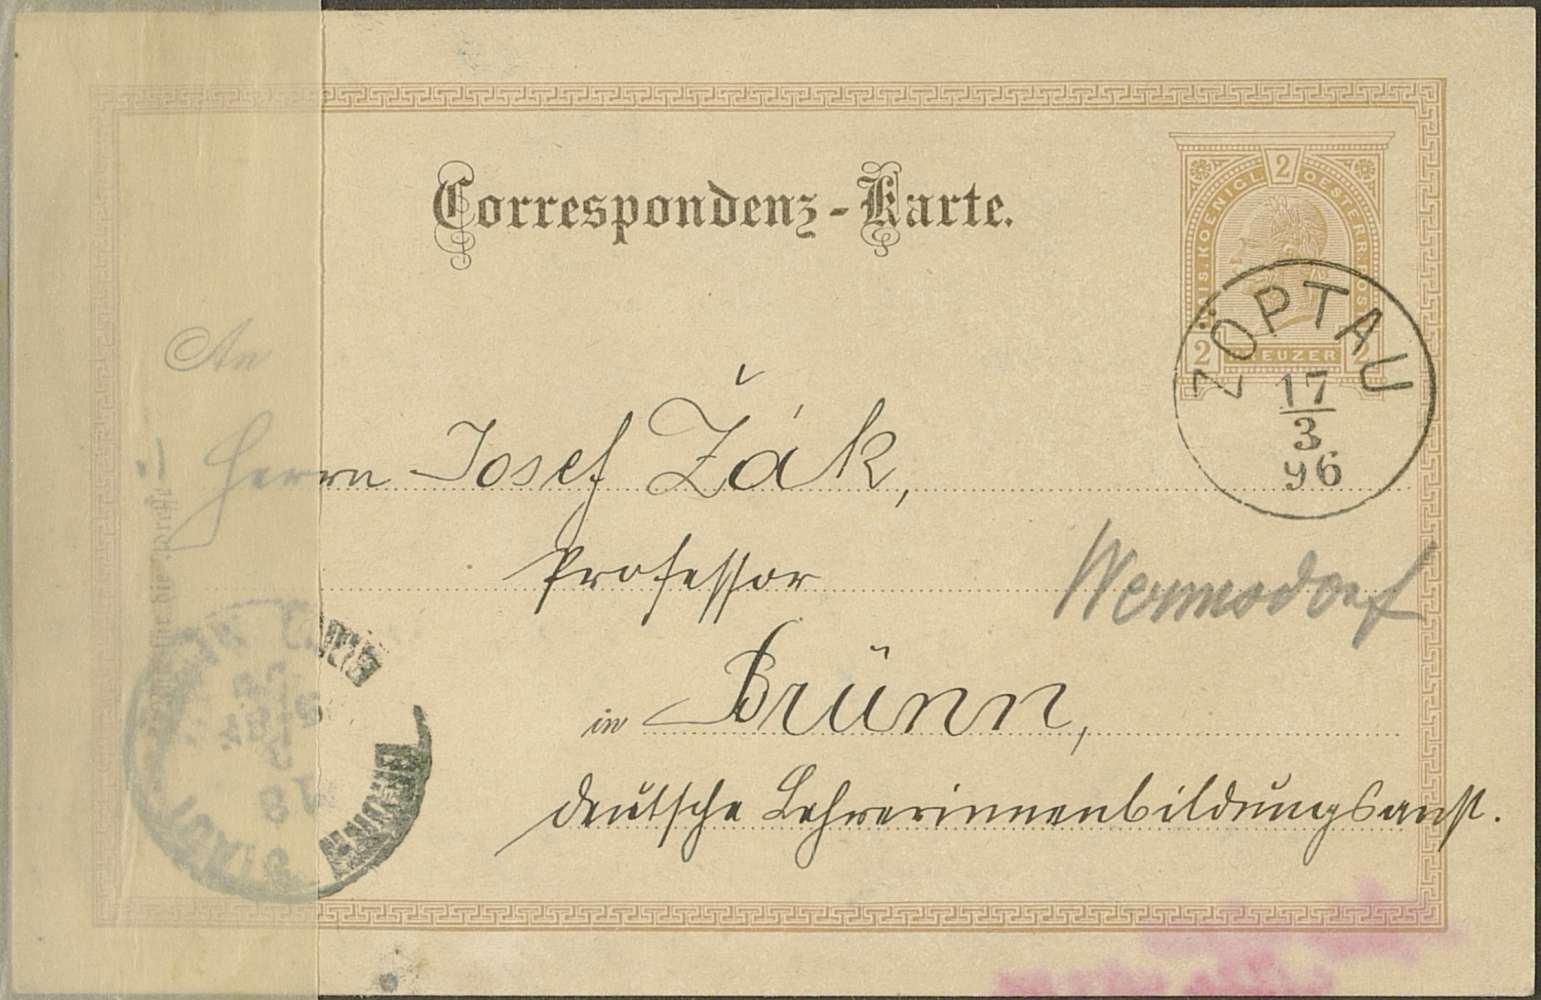 Correspondenz-Karte.
2
KAIS. KOENIGL. OESTERR. POST
2 KREUZER 2
ZÖPTAU
17
3
96
An
Herrn Josef Žák,
Professor
Wermsdorf
in Brünn,
deutsche Lehrerinnenbildungsanst.
BRÜNN
STADT
18
3